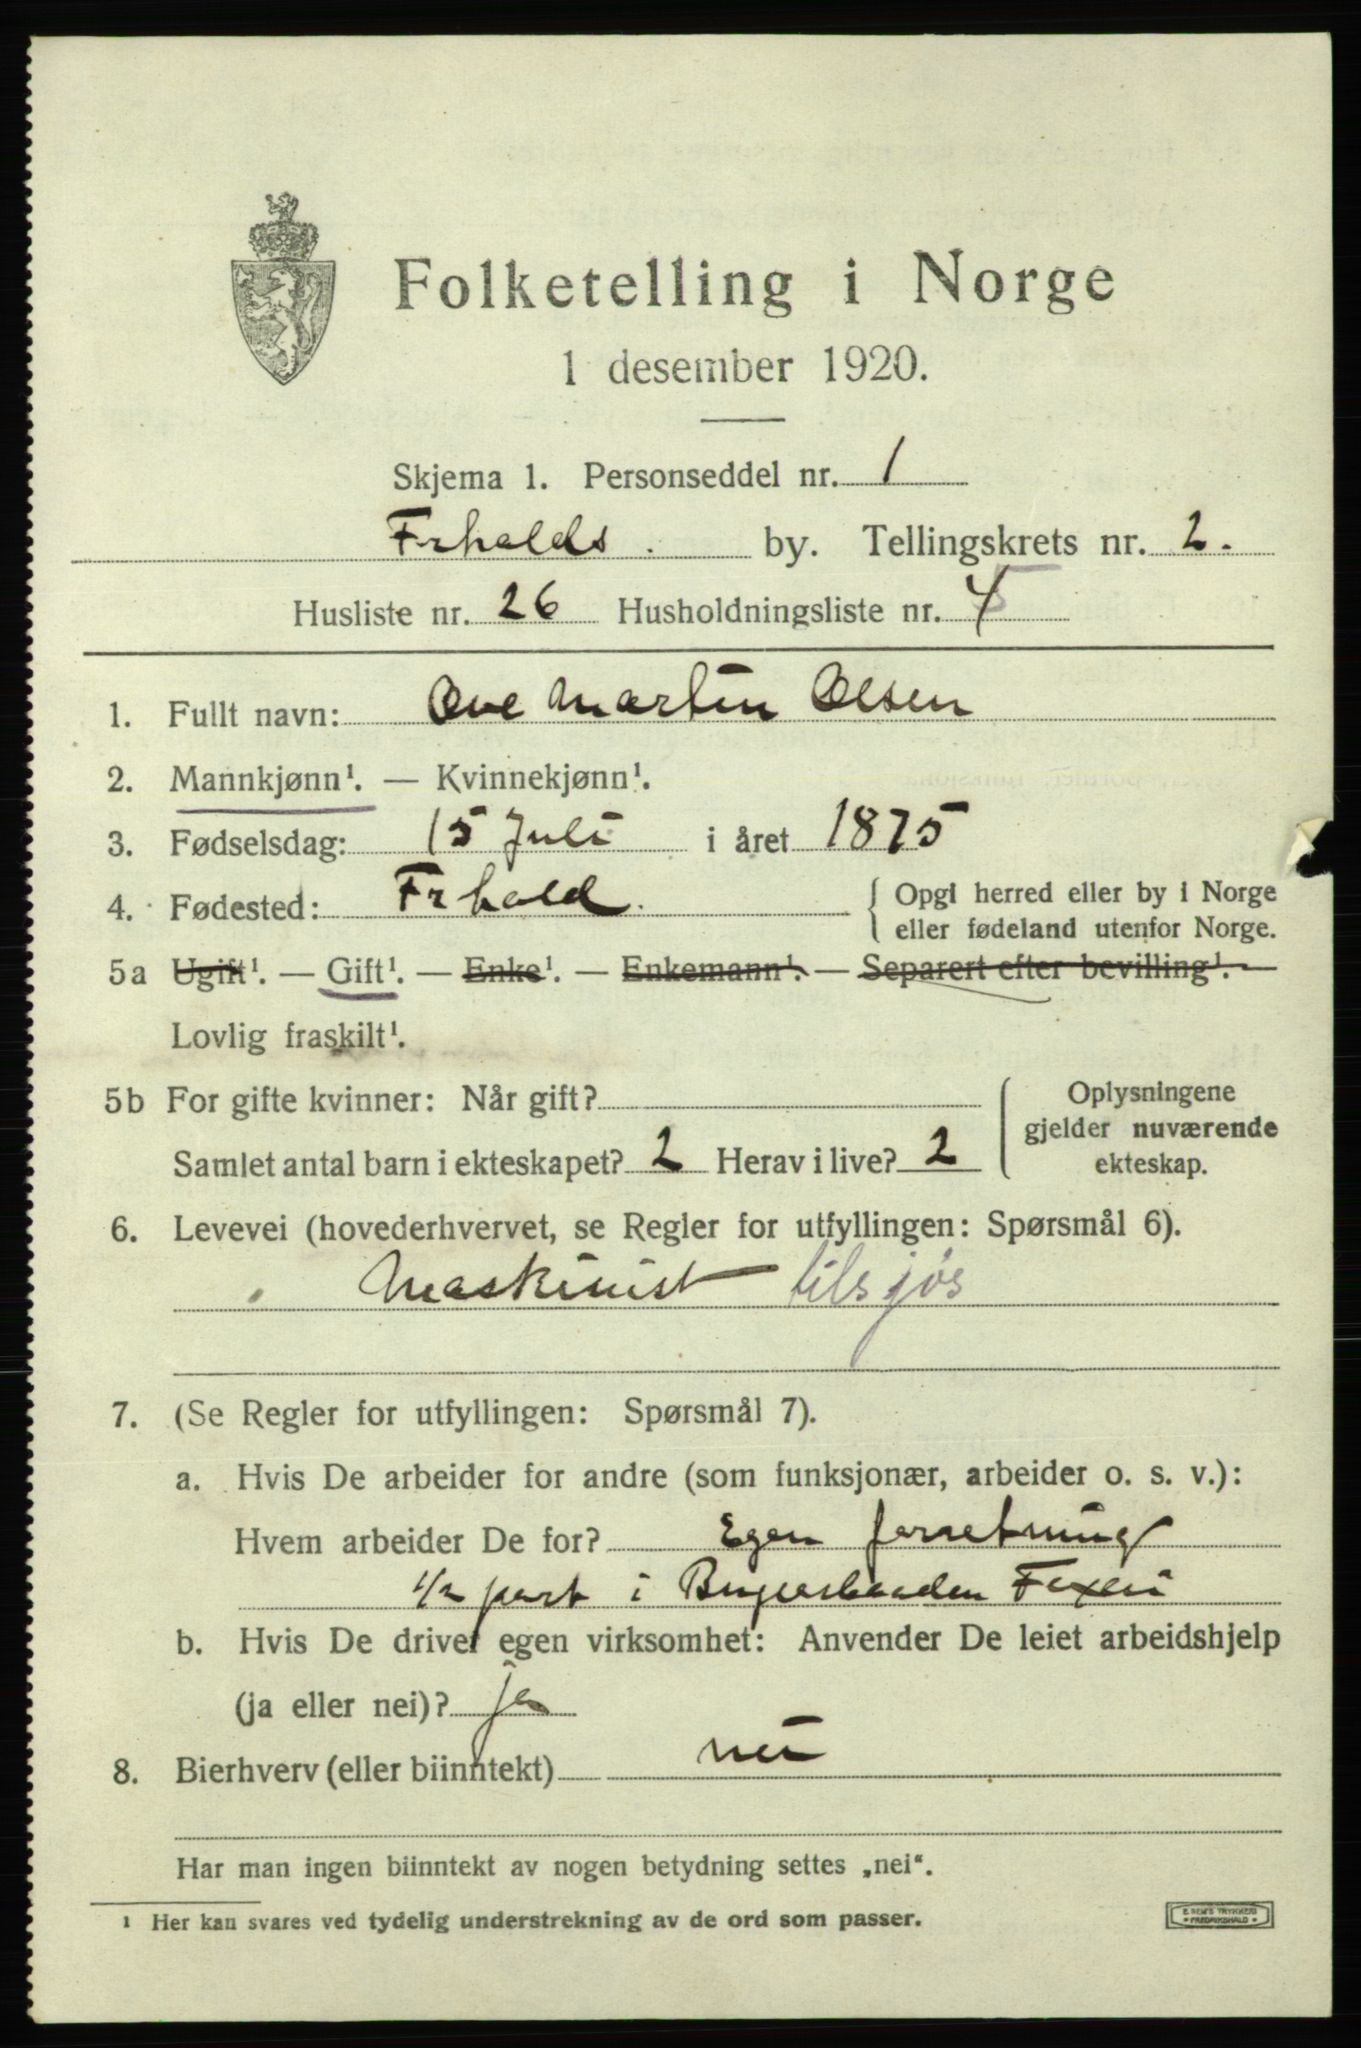 Folketelling i Norge
1 desember 1920.
Skjema 1. Personseddel nr. 1
Frhalds. by. Tellingskrets nr. 2.
Husliste nr. 26 Husholdningsliste nr. 4
1. Fullt navn: Ove Martin Olsen
2. Mannkjønn¹. — Kvinnekjønn¹.
3. Fødselsdag: 15 Juli i året 1875
4. Fødested: Frhald. { Opgi herred eller by i Norge
eller fødeland utenfor Norge.
5a Ugift¹. — Gift¹. — Enke¹. — Enkemann¹. — Separert efter bevilling¹. —
Lovlig fraskilt¹.
5b For gifte kvinner: Når gift? Oplysningene
gjelder nuværende
Samlet antal barn i ekteskapet? 2 Herav i live? 2 ekteskap.
6. Levevei (hovederhvervet, se Regler for utfyllingen: Spørsmål 6).
Maskinist tilsjøs
7. (Se Regler for utfyllingen: Spørsmål 7).
a. Hvis De arbeider for andre (som funksjonær, arbeider o. s. v.):
Hvem arbeider De for? Egen forretning
1/2 part i
b. Hvis De driver egen virksomhet: Anvender De leiet arbeidshjelp
(ja eller nei)? ja
8. Bierhverv (eller biinntekt) nei
Har man ingen biinntekt av nogen betydning settes „nei“.
¹ Her kan svares ved tydelig understrekning av de ord som passer.
E. SEM'S TRYKKERI
FREDRIKSHALD